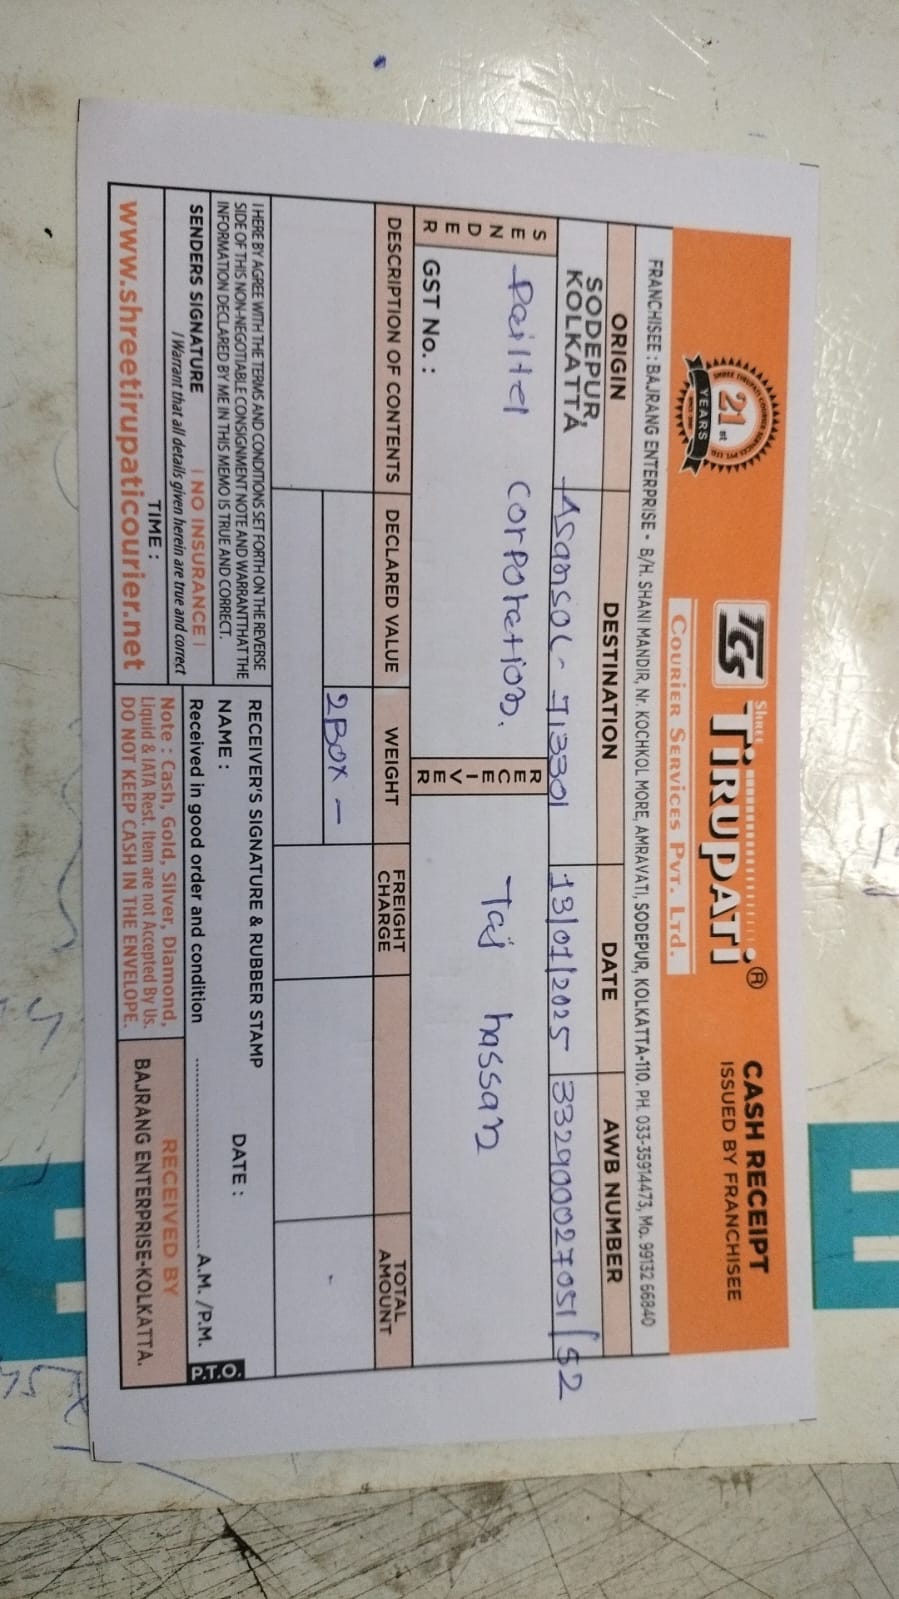 SHREE TIRUPATI COURIER SERVICES PVT. LTD.
21st
YEARS
TCS
SHREE
TIRUPATI ®
COURIER SERVICES PVT. LTD.
CASH RECEIPT
ISSUED BY FRANCHISEE
FRANCHISEE : BAJRANG ENTERPRISE - B/H. SHANI MANDIR, Nr. KOCHKOL MORE, AMRAVATI, SODEPUR, KOLKATTA-110. PH. 033-35914473, Mo. 99132 66840
ORIGIN DESTINATION DATE AWB NUMBER
SODEPUR, KOLKATTA Asansol - 713301 13/01/2025 332900027051/52
SENDER
Corporation.
GST No. :
RECEIVER
Taj hassan
DESCRIPTION OF CONTENTS DECLARED VALUE WEIGHT FREIGHT CHARGE TOTAL AMOUNT
2 Box - -
I HERE BY AGREE WITH THE TERMS AND CONDITIONS SET FORTH ON THE REVERSE
SIDE OF THIS NON-NEGOTIABLE CONSIGNMENT NOTE AND WARRANT THAT THE
INFORMATION DECLARED BY ME IN THIS MEMO IS TRUE AND CORRECT.
SENDERS SIGNATURE | NO INSURANCE |
I Warrant that all details given herein are true and correct
TIME :
www.shreetirupaticourier.net
RECEIVER'S SIGNATURE & RUBBER STAMP
NAME : DATE :
Received in good order and condition ........ A.M. /P.M.
P.T.O.
Note : Cash, Gold, Silver, Diamond,
Liquid & IATA Rest. Item are not Accepted By Us.
DO NOT KEEP CASH IN THE ENVELOPE.
RECEIVED BY
BAJRANG ENTERPRISE-KOLKATTA.